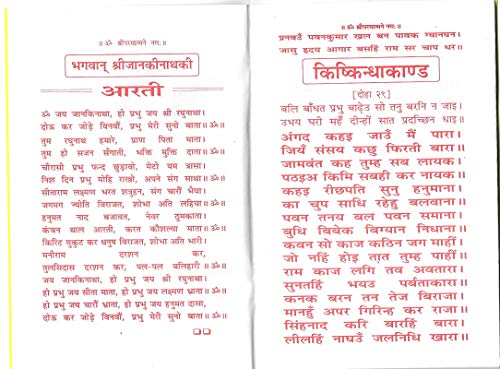 ॥ ॐ श्रीपरमात्मने नमः ॥
भगवान् श्रीजानकीनाथकी
आरती
ॐ जय जानकिनाथा, हो प्रभु जय श्री रघुनाथा।
दोऊ कर जोड़े विनवौं, प्रभु मेरी सुनो बाता॥ॐ॥
तुम रघुनाथ हमारे, प्राण पिता माता।
तुम हो सजन सँगाती, भक्ति मुक्ति दाता॥ॐ॥
चौरासी प्रभु फन्द छुड़ावो, मेटो यम त्रासा।
निश दिन प्रभु मोहि राखो, अपने संग साथा॥ॐ॥
सीताराम लक्ष्मण भरत शत्रुहन, संग चारौं भैया।
जगमग ज्योति विराजत, शोभा अति लहिया॥ॐ॥
हनुमत नाद बजावत, नेवर ठुमकाता।
कंचन थाल आरती, करत कौशल्या माता॥ॐ॥
किरिट मुकुट कर धनुष विराजत, शोभा अति भारी।
मनीराम दरशन कर,
तुलसिदास दरशन कर, पल-पल बलिहारी॥ॐ॥
जय जानकिनाथा, हो प्रभु जय श्री रघुनाथा।
हो प्रभु जय सीता माता, हो प्रभु जय लक्ष्मण भ्राता॥ॐ॥
हो प्रभु जय चारौं भ्राता, हो प्रभु जय हनुमत दासा,
दोऊ कर जोड़े विनवौं, प्रभु मेरी सुनो बाता॥ॐ॥
॥ ॐ श्रीपरमात्मने नमः ॥
प्रनवउँ पवनकुमार खल बन पावक ग्यानघन।
जासु हृदय आगार बसहिं राम सर चाप धर॥
किष्किन्धाकाण्ड
[दोहा २९]
बलि बाँधत प्रभु बाढ़ेउ सो तनु बरनि न जाइ।
उभय घरी महँ दीन्हीं सात प्रदच्छिन धाइ॥
अंगद कहइ जाउँ मैं पारा।
जियँ संसय कछु फिरती बारा॥
जामवंत कह तुम्ह सब लायक।
पठइअ किमि सबही कर नायक॥
कहइ रीछपति सुनु हनुमाना।
का चुप साधि रहेहु बलवाना॥
पवन तनय बल पवन समाना।
बुधि बिबेक बिग्यान निधाना॥
कवन सो काज कठिन जग माहीं।
जो नहिं होइ तात तुम्ह पाहीं॥
राम काज लगि तव अवतारा।
सुनतहिं भयउ पर्वताकारा॥
कनक बरन तन तेज बिराजा।
मानहुँ अपर गिरिन्ह कर राजा॥
सिंहनाद करि बारहिं बारा।
लीलहिं नाघउँ जलनिधि खारा॥